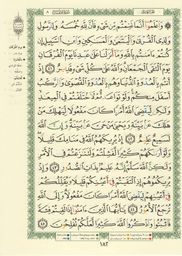 ۞ وَاعْلَمُوا أَنَّمَا غَنِمْتُم مِّن شَيْءٍ فَأَنَّ لِلَّهِ خُمُسَهُ وَلِلرَّسُولِ
وَلِذِي الْقُرْبَىٰ وَالْيَتَامَىٰ وَالْمَسَاكِينِ وَابْنِ السَّبِيلِ إِن
كُنتُمْ آمَنتُم بِاللَّهِ وَمَا أَنزَلْنَا عَلَىٰ عَبْدِنَا يَوْمَ الْفُرْقَانِ
يَوْمَ الْتَقَى الْجَمْعَانِ وَاللَّهُ عَلَىٰ كُلِّ شَيْءٍ قَدِيرٌ ٤١ إِذْ
أَنتُم بِالْعُدْوَةِ الدُّنْيَا وَهُم بِالْعُدْوَةِ الْقُصْوَىٰ وَالرَّكْبُ
أَسْفَلَ مِنكُمْ وَلَوْ تَوَاعَدتُّمْ لَاخْتَلَفْتُمْ فِي الْمِيعَادِ
وَلَٰكِن لِّيَقْضِيَ اللَّهُ أَمْرًا كَانَ مَفْعُولًا لِّيَهْلِكَ مَنْ
هَلَكَ عَن بَيِّنَةٍ وَيَحْيَىٰ مَنْ حَيَّ عَن بَيِّنَةٍ وَإِنَّ اللَّهَ
لَسَمِيعٌ عَلِيمٌ ٤٢ إِذْ يُرِيكَهُمُ اللَّهُ فِي مَنَامِكَ قَلِيلًا
وَلَوْ أَرَاكَهُمْ كَثِيرًا لَّفَشِلْتُمْ وَلَتَنَازَعْتُمْ فِي الْأَمْرِ
وَلَٰكِنَّ اللَّهَ سَلَّمَ إِنَّهُ عَلِيمٌ بِذَاتِ الصُّدُورِ ٤٣ وَإِذْ
يُرِيكُمُوهُمْ إِذِ الْتَقَيْتُمْ فِي أَعْيُنِكُمْ قَلِيلًا وَيُقَلِّلُكُمْ
فِي أَعْيُنِهِمْ لِيَقْضِيَ اللَّهُ أَمْرًا كَانَ مَفْعُولًا وَإِلَى اللَّهِ
تُرْجَعُ الْأُمُورُ ٤٤ يَا أَيُّهَا الَّذِينَ آمَنُوا إِذَا لَقِيتُمْ فِئَةً
فَاثْبُتُوا وَاذْكُرُوا اللَّهَ كَثِيرًا لَّعَلَّكُمْ تُفْلِحُونَ ٤٥
١٨٢